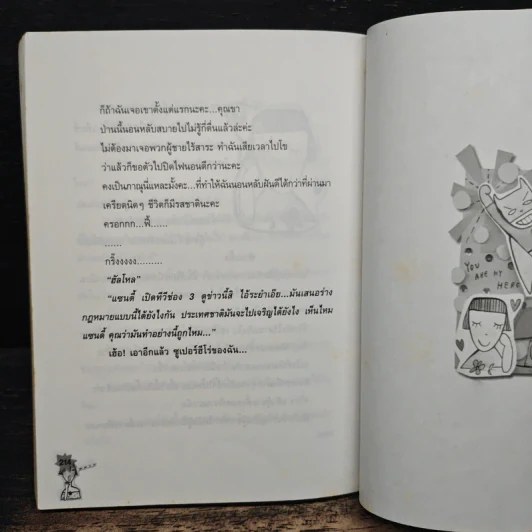 ก็ถ้าฉันเจอเขาตั้งแต่แรกนะคะ...คุณขา
ป่านนี้นอนหลับสบายไปไม่รู้กี่ตื่นแล้วล่ะค่ะ
ไม่ต้องมาเจอพวกผู้ชายไร้สาระ ทำฉันเสียเวลาไปโข
ว่าแล้วก็ขอตัวไปปิดไฟนอนดีกว่านะคะ
คงเป็นภาณุนี่แหละมั้งคะ...ที่ทำให้ฉันนอนหลับฝันดีได้กว่าที่ผ่านมา
เครียดนิดๆ ชีวิตก็มีรสชาตินะคะ
ครอกกก...ฟี้......
......
กริ๊งงงงง.........
"ฮัลโหล"
"แซนดี้ เปิดทีวีช่อง 3 ดูข่าวนี้สิ ไอ้ระยำเอ๊ย...มันเสนอร่าง
กฎหมายแบบนี้ได้ยังไงกัน ประเทศชาติมันจะไปเจริญได้ยังไง เห็นไหม
แซนดี้ คุณว่ามันทำอย่างนี้ถูกไหม..."
เฮ้อ! เอาอีกแล้ว ซูเปอร์ฮีโร่ของฉัน...
YOU ARE MY
HERO